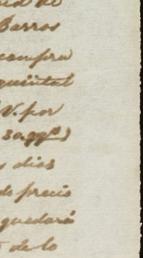 de
Barros
compra
quintal
V. por
dias
de precio
quedará
de lo